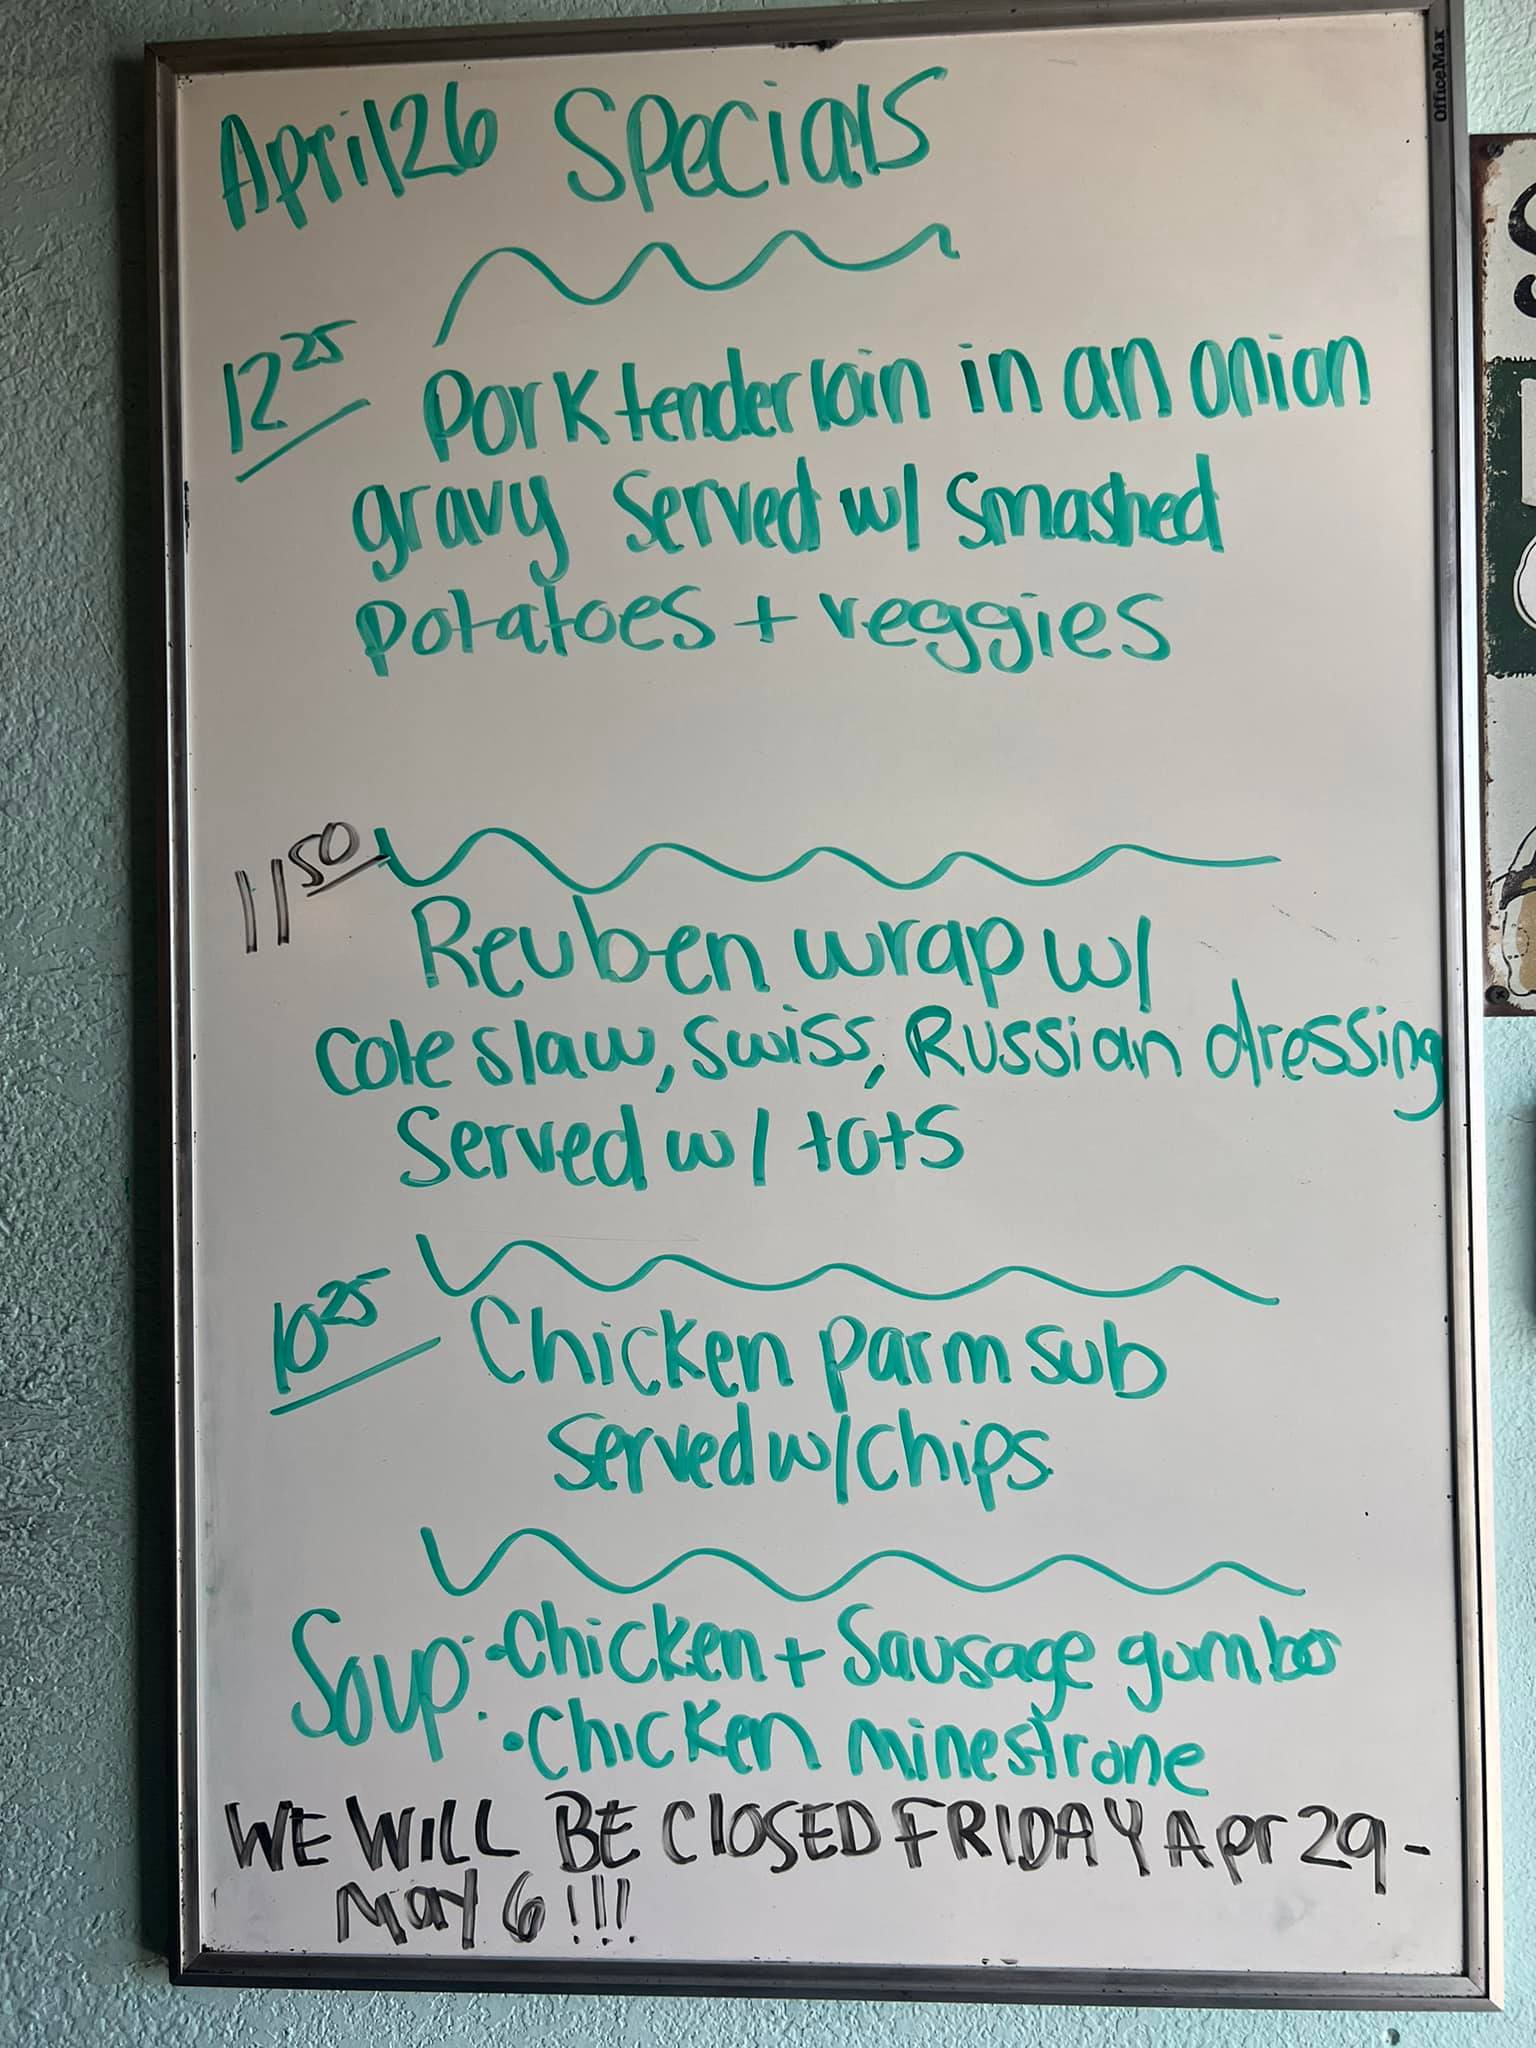 OfficeMax
April 26 Specials
12 25
Pork tenderloin in an onion
gravy Served w/ smashed
potatoes + veggies
11 50
Reuben wrap w/
Cole slaw, swiss, Russian dressing
Served w/ tots
10 25
Chicken parm sub
Served w/ chips
Soup: • Chicken + Sausage gumbo
• Chicken minestrone
WE WILL BE CLOSED FRIDAY Apr 29 -
May 6 !!!